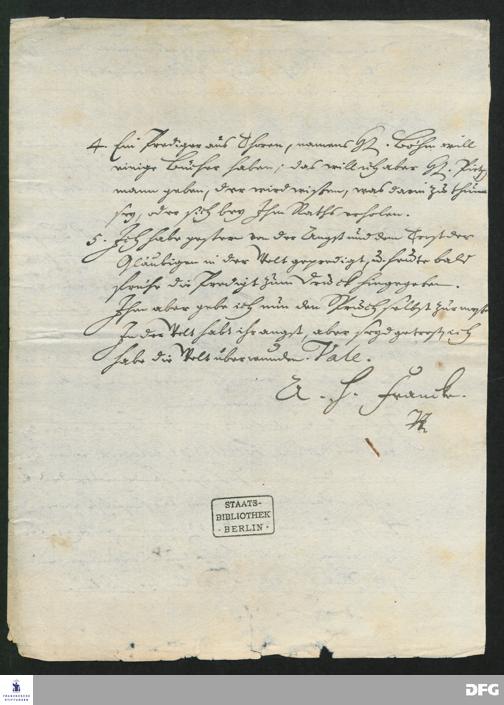 4. Ein Prediger aus Thoren, namens H. Böhm will
einige Bücher haben; das will ich aber H. Pietz
mann geben, der wird wißen, was darin zu thun
sey, oder sich bey Ihm Raths erholen.
5. Ich habe gestern von der Angst und dem Trost der
Gläubigen in der Welt gepredigt, u. heute bald
frühe die Predigt zum Druck hingegeben.
Ihm aber gebe ich nun den Spruch selbst zur
In der Welt habt ihr angst, aber seyd getrost, ich
habe die Welt überwunden. Vale.
A. H. Francke.
STAATS-
BIBLIOTHEK
· BERLIN ·
FRANCKESCHE
STIFTUNGEN
DFG